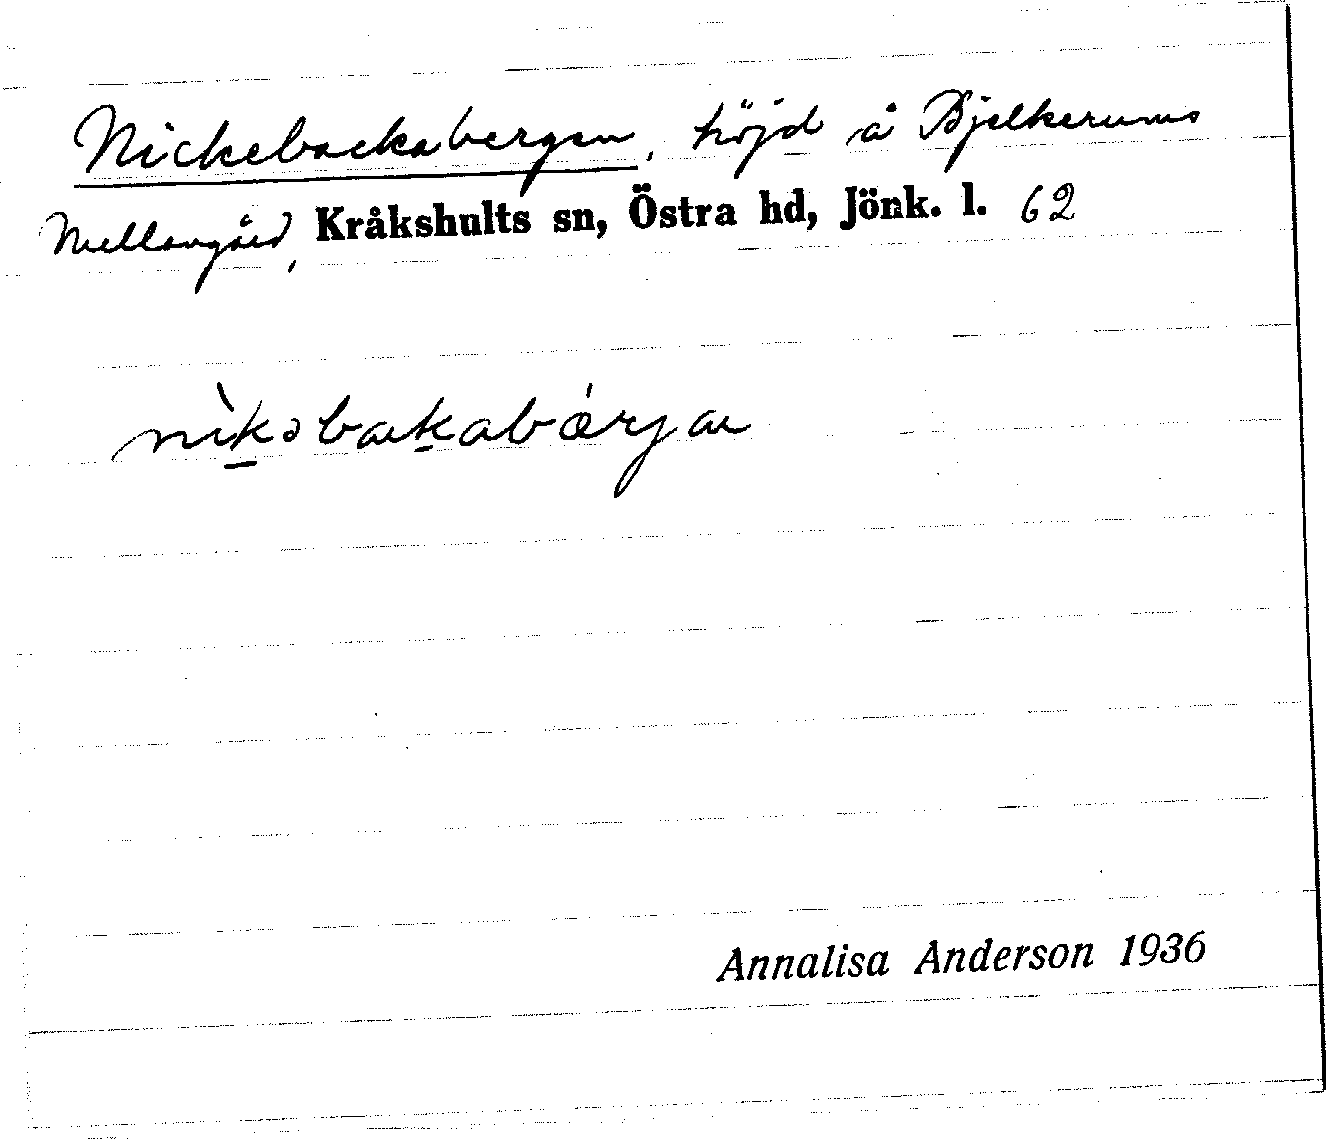 Nickebackabergen, höjd å Bjelkerums
Mellangård, Kråkshults sn, Östra hd, Jönk. l. 62
nìkəbakabǽrjan
Annalisa Anderson 1936